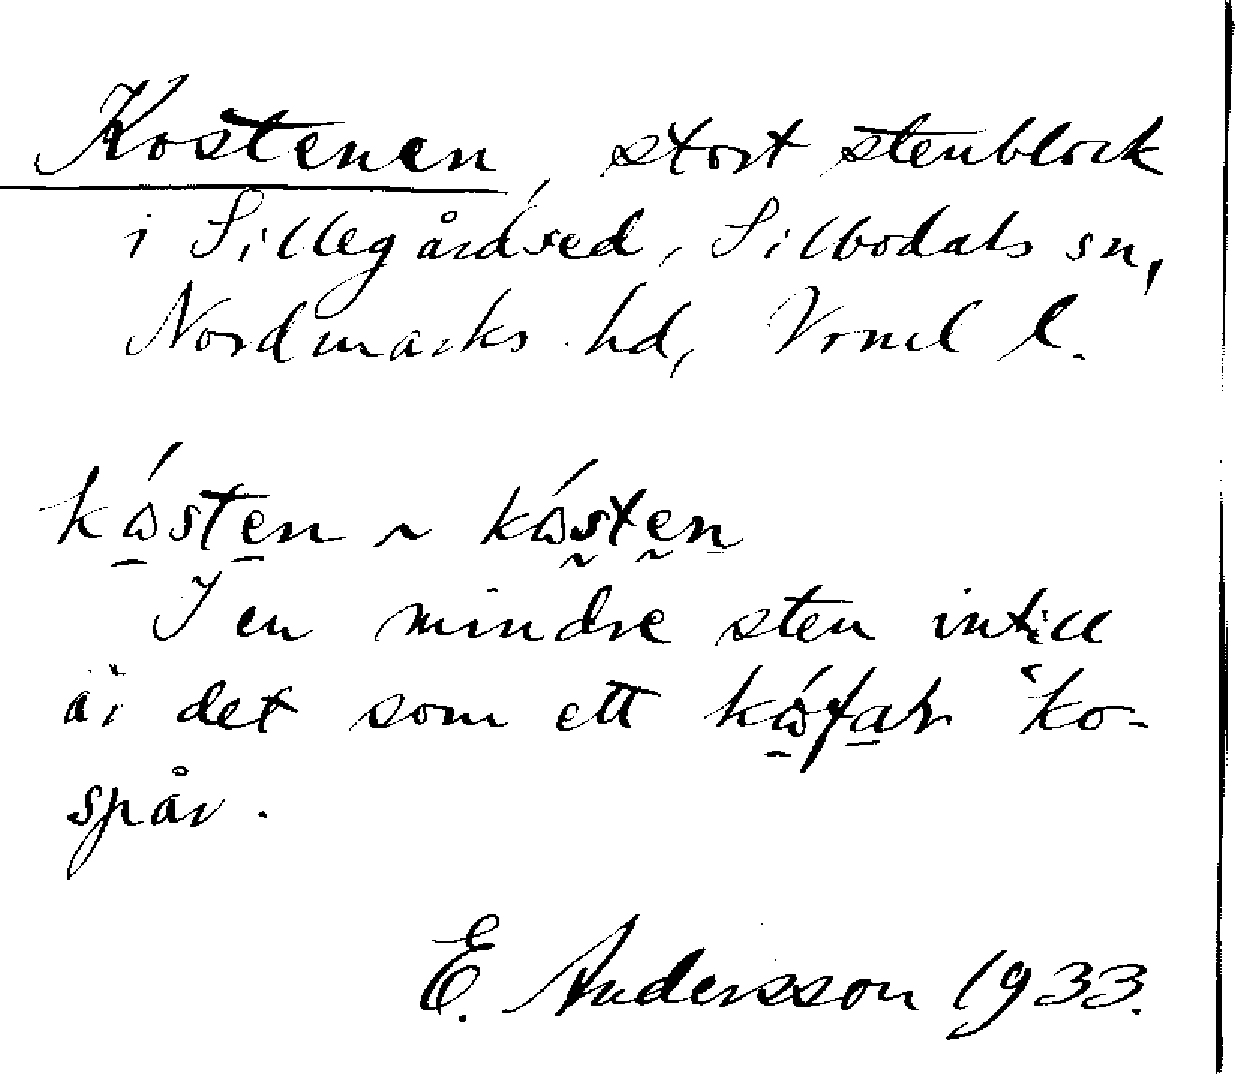 Kostenen, stort stenblock
i Sillegårdsed, Silbodals sn,
Nordmarks hd, Vrml l.
kɷ́sten ~ kɷ́sten
I en mindre sten intill
är det som ett kɷ́fat "ko-
spår.
E. Andersson 1933.